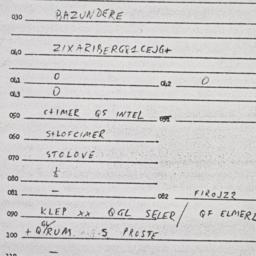 030 BAZUNDERE
040 ZIXARIBERGE1CEJG+
041 0 042 0
043 0
050 C+IMER GS INTEL 055
060 S+LOFCIMER
070 STOLOVE
080 ½
081 - 082 FIROJZZ
090 KLEP xx QGL SELER/ GF ELMERL
100 + S PROSTE
110 -